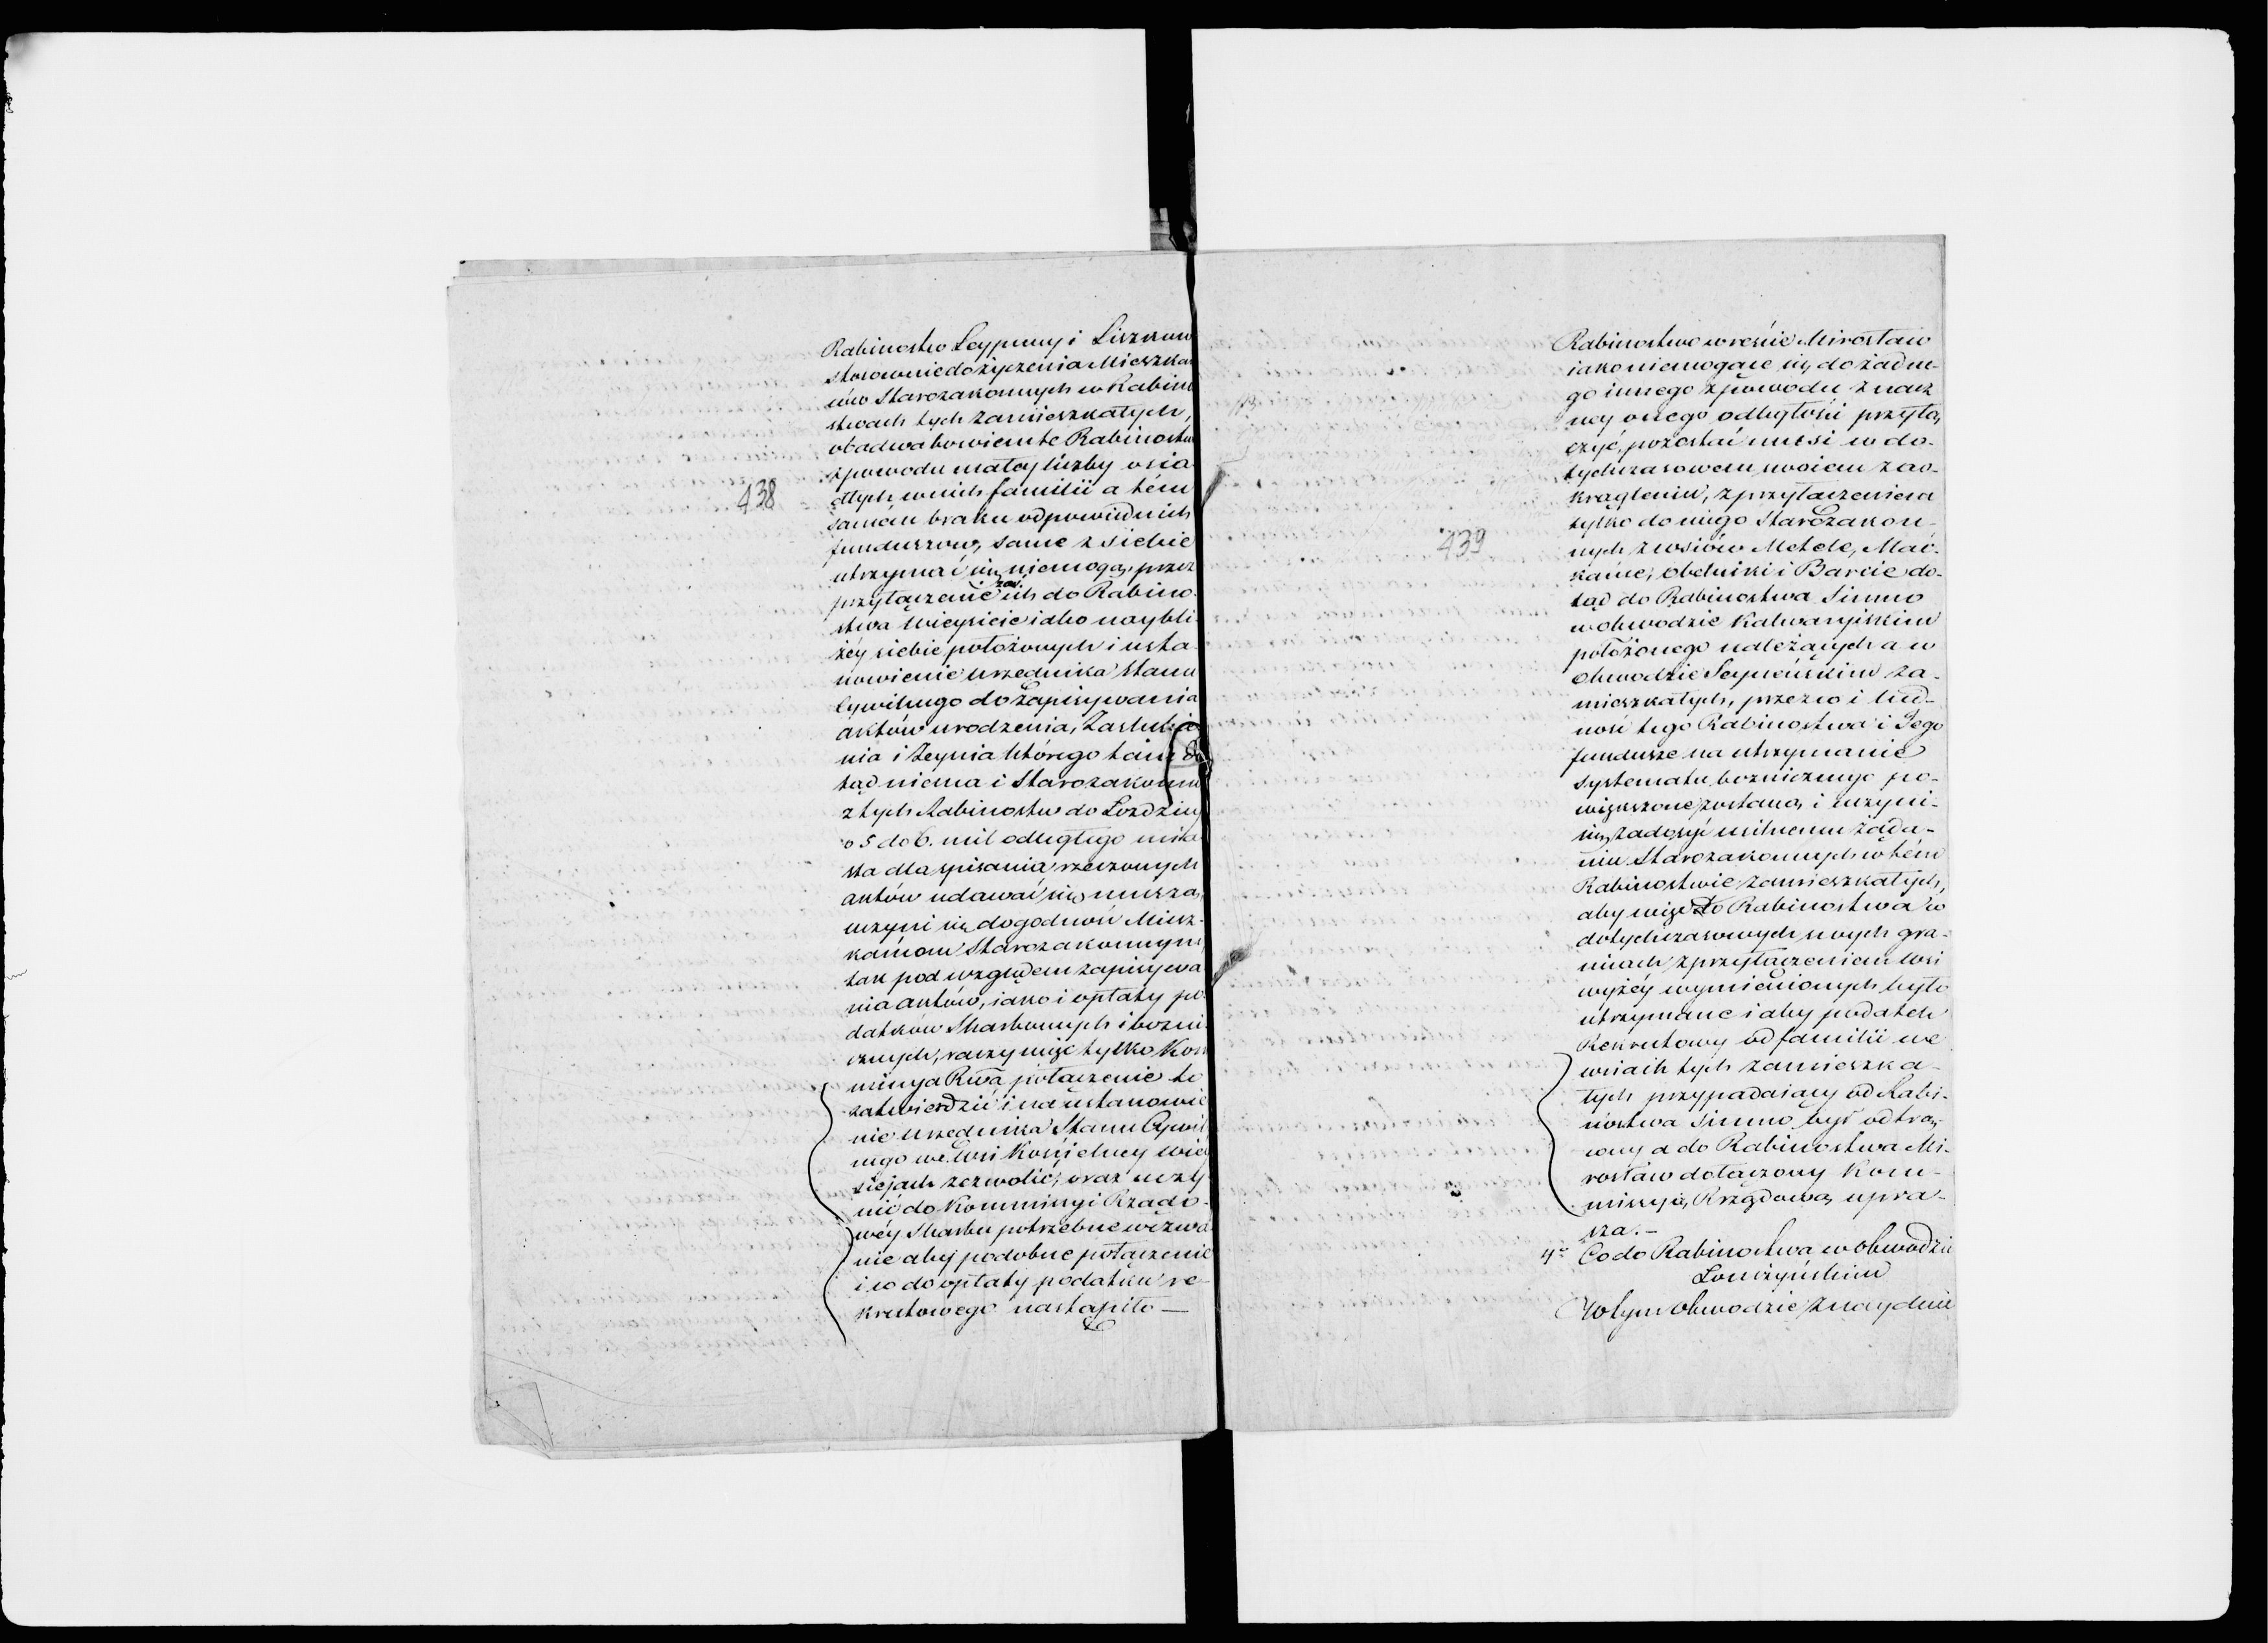 Rabinostw Leypuny i Liszkow
stosownie do życzenia Mieszkań
ców Starozakonnych w Rabino
stwach tych zamieszkałych,
obadwa bowiem te Rabinostwa
z powodu małey liczby osia
dłych w nich familii a tém
samém braku odpowiednich
funduszow, same z siebie
utrzymać się niemogą, przez
przyłączenie zaś ich do Rabino
stwa Wieysieie iako naybli
żéy siebie położonych i usta
nowienie urzędnika Stanu
Cywilnego do zapisywania
aktów urodzenia, Zaślubie
nia i Zeyścia którego tam do
tąd niema i Starozakonni
z tych Rabinostw do Łozdziey
o 5 do 6. mil odległego mia
sta dla spisania rzeczonych
aktów udawać się muszą,
uczyni się dogodność Miesz-
kańcom Starozakonnym
tak pod względem zapisywa
nia aktów, iako i opłaty po
datków Skarbowych i bozni
cznych, raczy więc tylko Kom
missya Rwa połączenie to
zatwierdzić i na ustanowie
nie Urzędnika Stanu Cywil
nego we Wsi Kościelney Wiey
siejach zezwolić, oraz uczy
nić do Kommissyi Rządo-
wéy Skarbu potrzebne wezwa
nie aby podobne połączenie
i co do opłaty podatku re-
krutowego nastąpiło —
438
Rabinostwo w reście Mirosław
iako niemogące się do żadne-
go innego z powodu znacz
ney onego odległości przyłą
czyć, pozostać musi w do-
tychczasowem swoiem zao-
krągleniu, z przyłączeniem
tylko do niego Starozakon-
nych z wsiów Metele, Mac-
kańce, Obelniki i Barcie do-
tąd do Rabinostwa Simno
w obwodzie Kalwaryiskim
położonego należących a w
Obwodzie Seyneńskim za-
mieszkałych, przez co i lud-
ność tego Rabinostwa i Jego
fundusze na utrzymanie
systematu bozniczego po-
większone zostaną i uczyni-
się zadosyć usilnemu żąda-
niu Starozakonnych w tém
Rabinostwie zamieszkałych,
aby więc to Rabinostwa w
dotychczasowych swych gra-
nicach z przyłączeniem wsi
wyżéy wymienionych było
utrzymane i aby podatek
Rekrutowy od familii we
wsiach tych zamieszka-
łych przypadaiący od Rabi-
nostwa Simno był odtrą-
cony a do Rabinostwa Mi-
rosław dołączony Kom-
missyą Rządową upra-
sza. —
439
4o Co do Rabinostwa w Obwodzie
Łomżyńskim
W tym Obwodzie znayduie